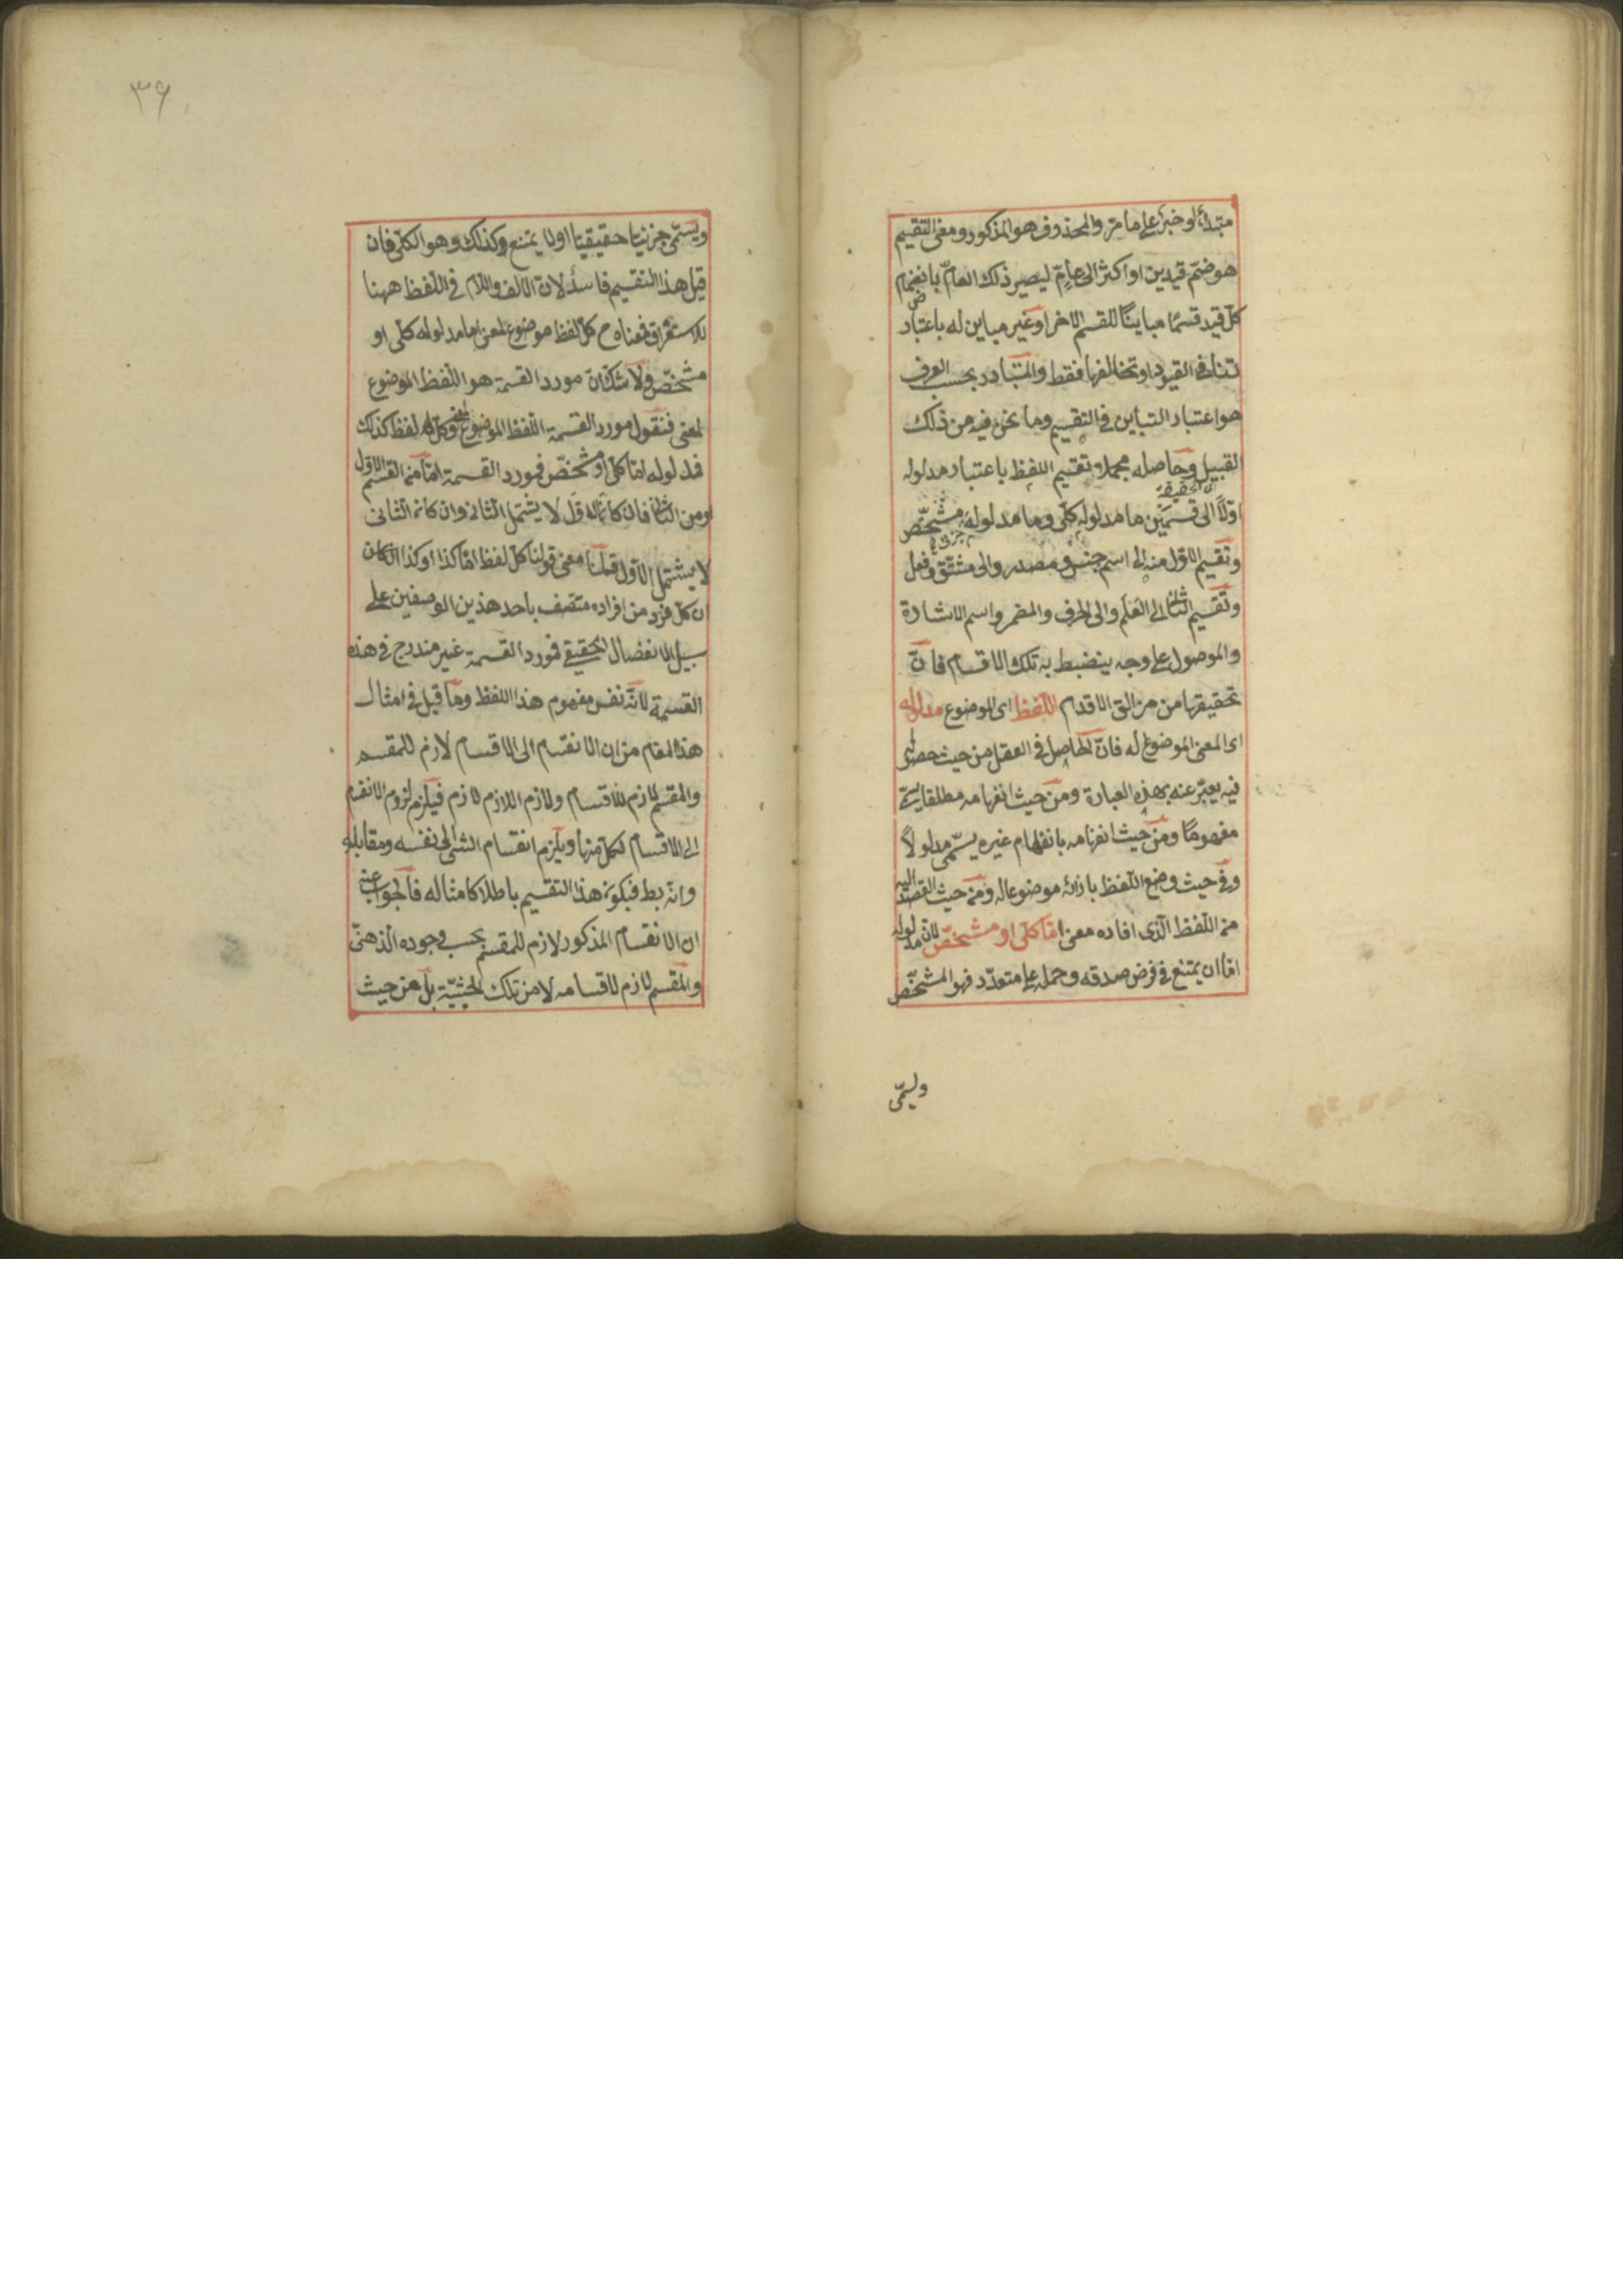 مبتدأ او خبر على ما مرّ والمحذوف هو المذكور ومعنى التقسيم
هو ضمّ قيدين او اكثر الى عامّ ليصير ذلك العامّ بانضمام
كلّ قيد قسمًا مباينًا للقسم الاخر او غير مباين له باعتبار
تنافى القيود او تخالفها فقط والمتبادر بحسب العرف
هو اعتبار التباين فى التقسيم وما نحن فيه من ذلك
القبيل وحاصله مجملا تقسيم اللفظ باعتبار مدلوله
اوّلاً الى قسمين ما مدلوله كلّى وما مدلوله مشخّص
وتقسيم الاوّل منه الى اسم جنس ومصدر والى مشتقّ وفعل
وتقسيم الثانى الى العَلَم والى الحرف والمضمر واسم الاشارة
والموصول على وجه ينضبط به تلك الاقسام فانّ
تحقيقها من مزالق الاقدام اللّفظ اى الموضوع مدلوله
اى المعنى الموضوع له فانّ الحاصل فى العقل من حيث حصوله
فيه يعبّر عنه بهذه العبارة ومن حيث انفهامه مطلقا يسمّى
مفهومًا ومن حيث انفهامه بانفهام غيره يسمّى مدلولاً
ومن حيث وضع اللّفظ بازائه موضوعا له ومن حيث القصد اليه
من اللّفظ الّذى افاده معنى امّا كلّى او مشخّص لانّ مدلوله
امّا ان يمتنع فرض صدقه وحمله على متعدّد فهو المشخّص
ويسمّى
٣٩
ويسمّى جزئيّا حقيقيّا او لا يمتنع كذلك وهو الكلّى فان
قيل هذا التقسيم فاسد لانّ الالف واللّام فى اللّفظ ههنا
للاستغراق فمعناه ح كلّ لفظ موضوع لمعنى اما مدلوله كلّى او
مشخّص ولا شكّ انّ مورد القسمة هو اللّفظ الموضوع
لمعنى فنقول مورد القسمة اللّفظ الموضوع لمعنى وكلّ لفظ كذلك
فمدلوله امّا كلّى او مشخّص فمورد القسمة امّا من القسم الاوّل
او من الثانى فان كان الاوّل لا يشتمل الثانى وان كان الثانى
لا يشتمل الاوّل قلنا معنى قولنا كلّ لفظ امّا كذا او كذا
ان كلّ فرد من افراده متّصف باحد هذين الوصفين على
سبيل الانفصال الحقيقى فمورد القسمة غير مندرج فى هذه
القسمة لانّه نفس مفهوم هذا اللفظ وما قيل فى امثال
هذا المقام من ان الانقسام الى الاقسام لازم للمقسم
والمقسم لازم للاقسام ولازم اللازم لازم فيلزم لزوم الانقسام
الى الاقسام لكلّ منها ويلزم انقسام الشئ الى نفسه ومقابله
وانّه بط فيكون هذا التقسيم باطلا كامثاله فالجواب عنه
ان الانقسام المذكور لازم للمقسم بحسب وجوده الذهنىّ
والمقسم لازم لاقسامه لا من تلك الحيثيّة بل من حيث